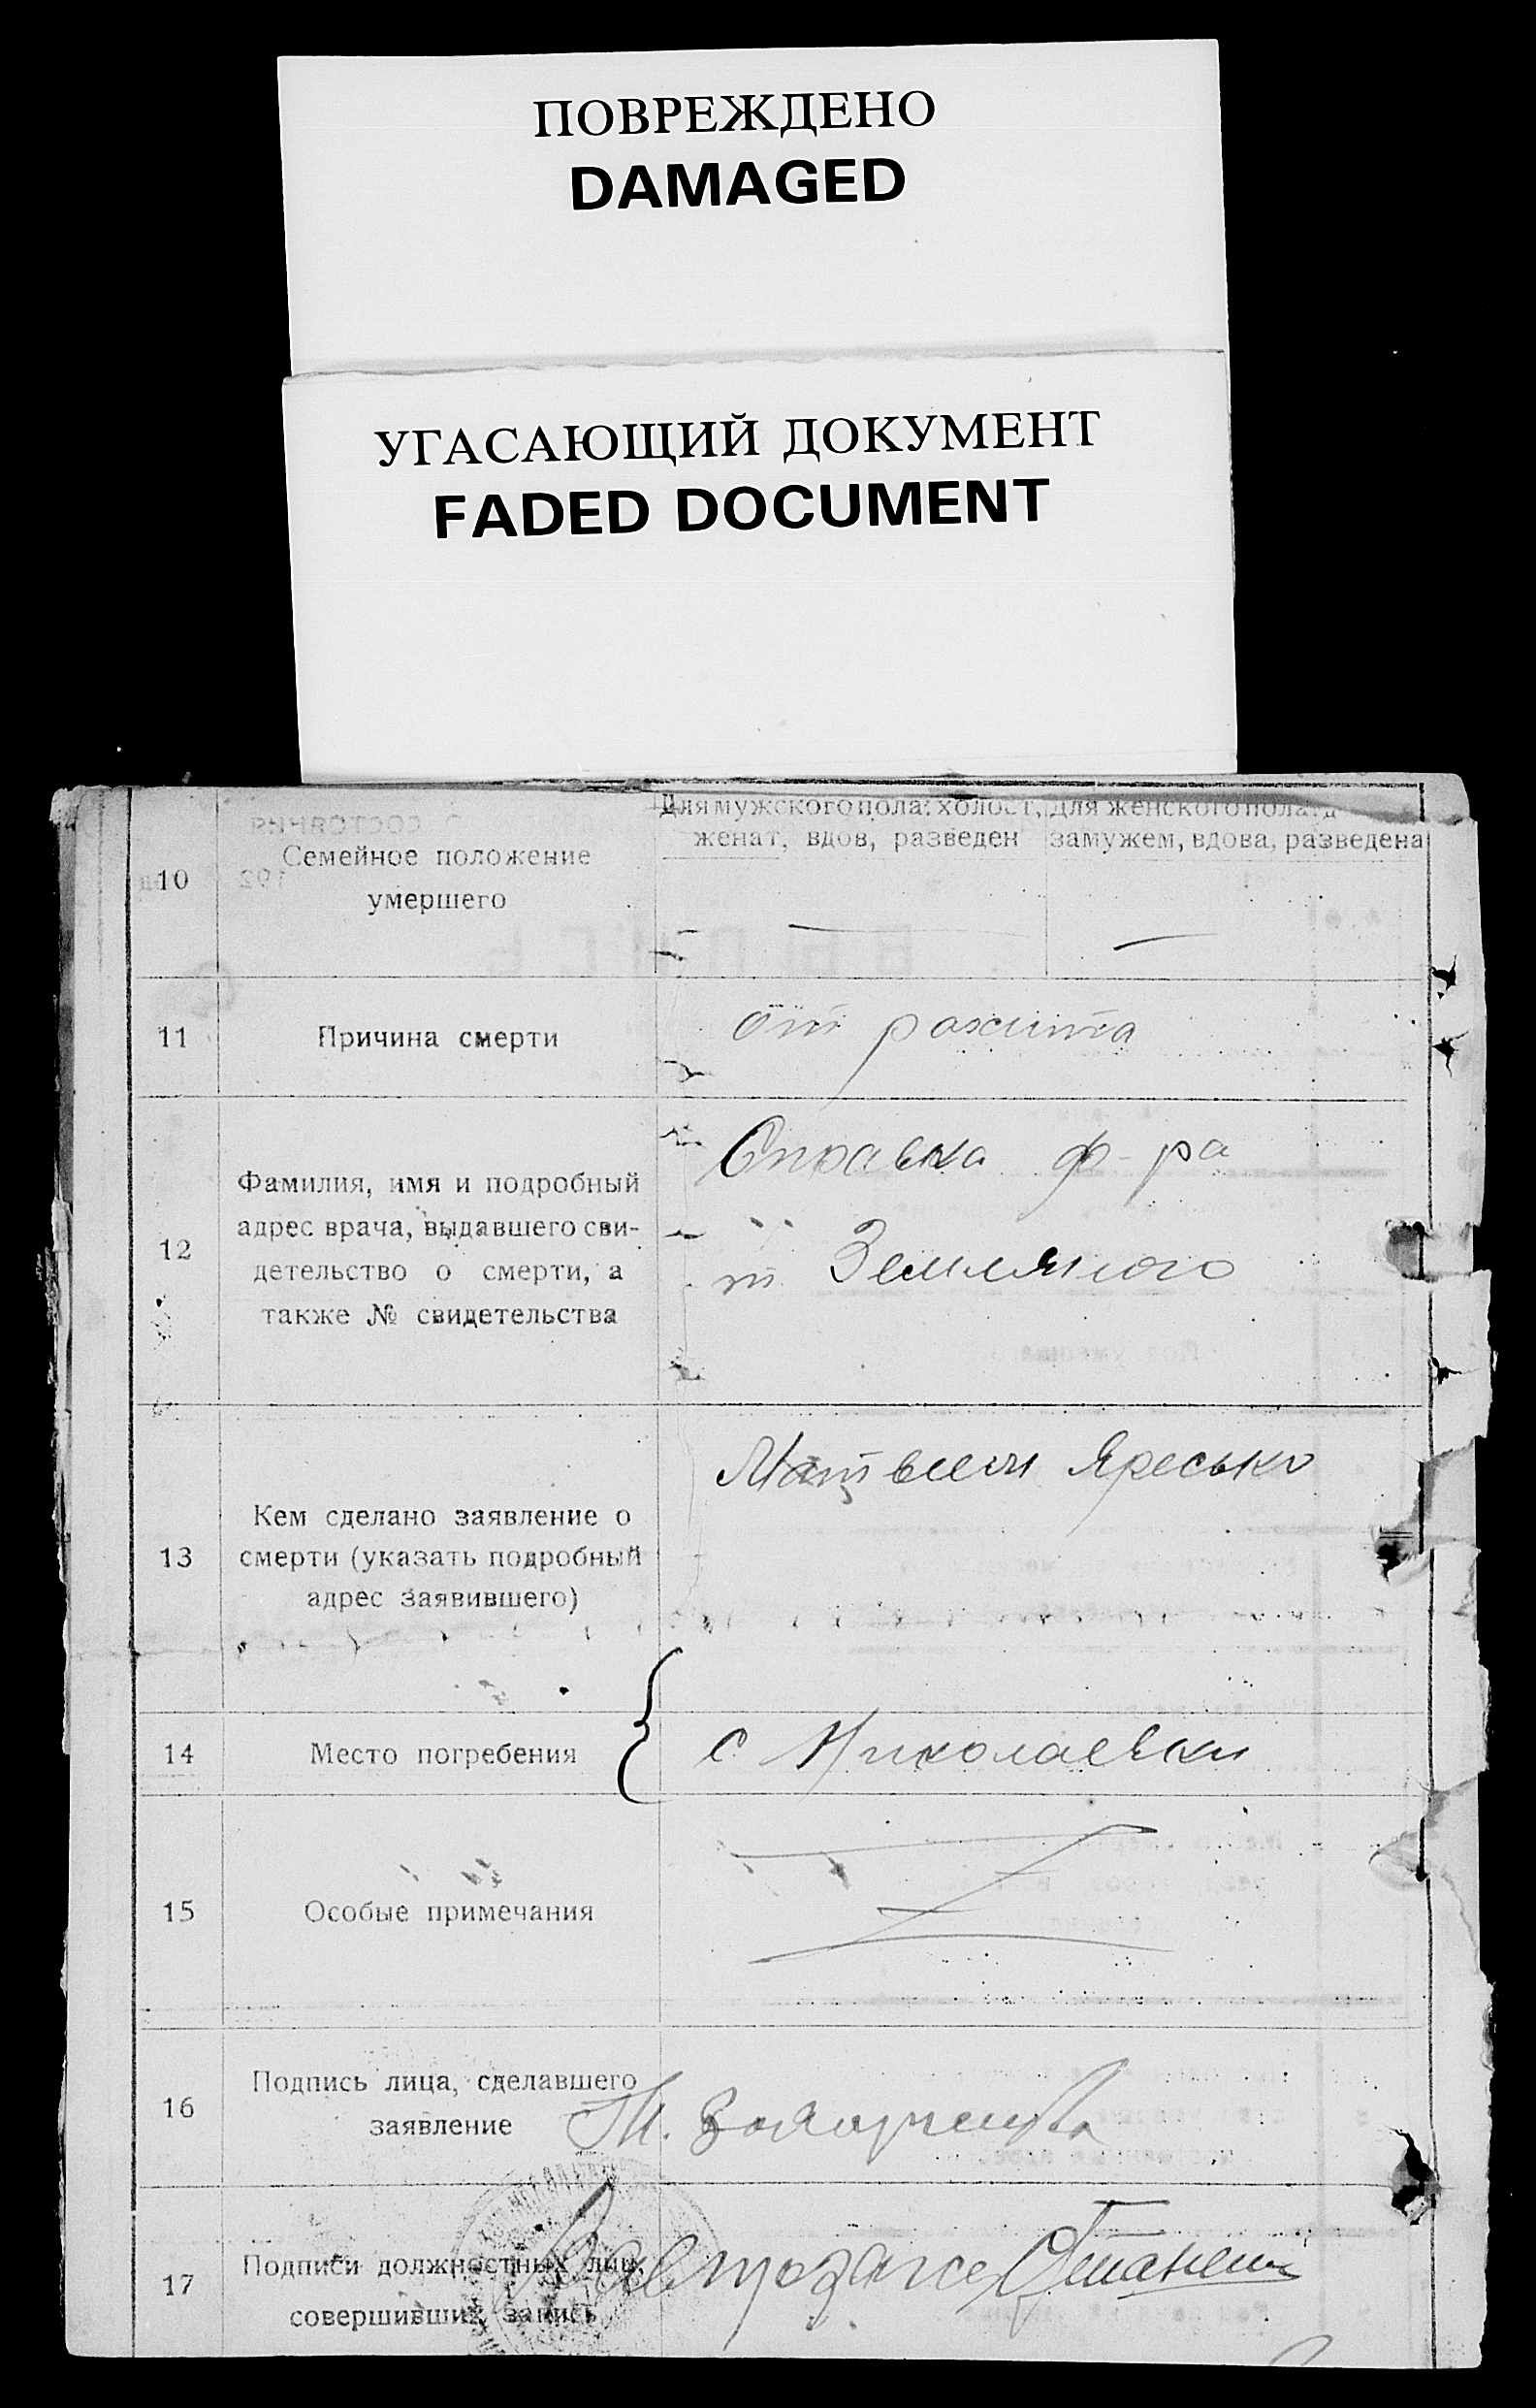 ПОВРЕЖДЕНО
DAMAGED
УГАСАЮЩИЙ ДОКУМЕНТ
FADED DOCUMENT
10
Семейное положение
умершего
Для мужского пола: холост,
женат, вдов, разведен
для женского пола:
замужем, вдова, разведена
11
Причина смерти
от рахита
12
Фамилия, имя и подробный
адрес врача, выдавшего сви-
детельство о смерти, а
также № свидетельства
Справка ф-ра
т. Земляного
13
Кем сделано заявление о
смерти (указать подробный
адрес заявившего)
Матвеем Яресько
14
Место погребения
с. Николаевки
15
Особые примечания
16
Подпись лица, сделавшего
заявление
17
Подписи должностных лиц,
совершивших запись